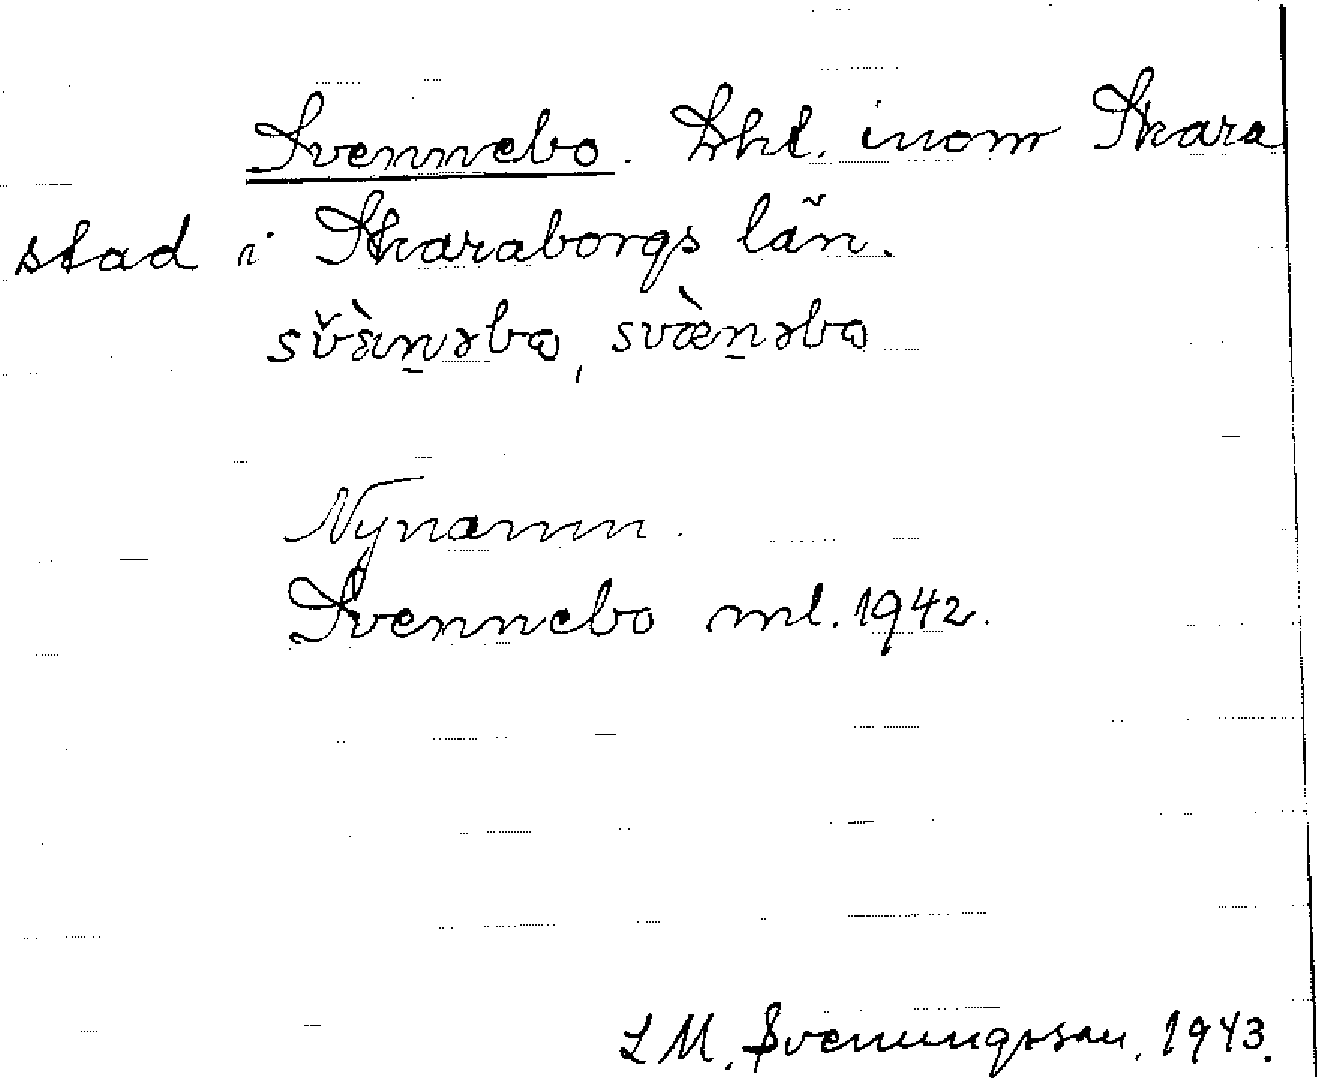 Svennebo. Lht. inom Skara
stad i Skaraborgs län.
sv̌æ̀n̠əbo, svæ̀n̠əbo
Nynamn.
Svennebo ml. 1942.
L M. Svenungsson, 1943.